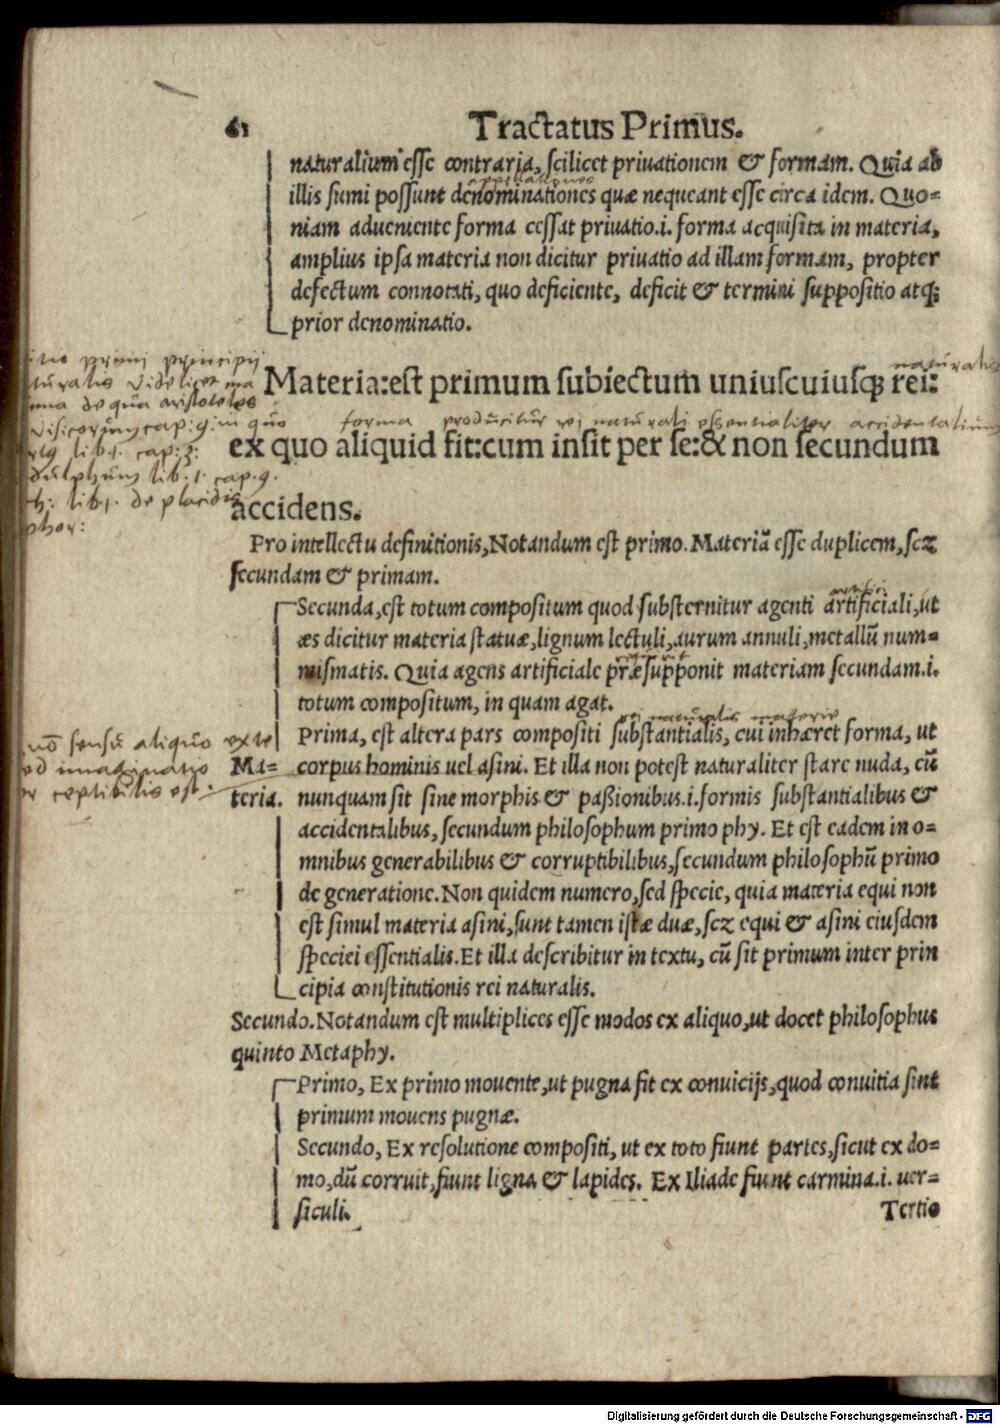 Tractatus Primus.
naturalium esse contraria, scilicet priuationem & formam. Quia ab
appellationes
illis sumi possunt denominationes quæ nequeant esse circa idem. Quo=
niam adueniente forma cessat priuatio.i. forma acquisita in materia,
amplius ipsa materia non dicitur priuatio ad illam formam, propter
defectum connotati, quo deficiente, deficit & termini suppositio atq;
prior denominatio.
naturalis
Materia:est primum subiectum uniuscuiusq; rei:
forma producitur rei naturali essentialiter accidentalium
ex quo aliquid fit:cum insit per se:& non secundum
accidens.
primi principij
naturalis videlicet ma
de qua aristoteles
cap: 9: in quo
lib. 1. cap: 3:
lib. 1. cap. 9.
lib. 1. de placidis
Pro intellectu definitionis,Notandum est primo.Materiã esse duplicem,scz
secundam & primam.
Secunda,est totum compositum quod substernitur agenti artificiali,ut
æs dicitur materia statuæ,lignum lectuli,aurum annuli,metallũ num=
mismatis. Quia agens artificiale præsupponit materiam secundam.i.
totum compositum, in quam agat.
rei naturalis materie
Prima, est altera pars compositi substantialis, cui inhæret forma, ut
sensu aliquo
imaginatio
est
Ma= corpus hominis uel asini. Et illa non potest naturaliter stare nuda, cũ
teria. nunquam sit sine morphis & paßionibus.i.formis substantialibus &
accidentalibus, secundum philosophum primo phy. Et est eadem in o=
mnibus generabilibus & corruptibilibus,secundum philosophũ primo
de generatione.Non quidem numero,sed specie, quia materia equi non
est simul materia asini,sunt tamen istæ duæ,scz equi & asini eiusdem
speciei essentialis.Et illa describitur in textu, cũ sit primum inter prin
cipia constitutionis rei naturalis.
Secundo.Notandum est multiplices esse modos ex aliquo,ut docet philosophus
quinto Metaphy.
Primo, Ex primo mouente,ut pugna fit ex conuicijs,quod conuitia sint
primum mouens pugnæ.
Secundo, Ex resolutione compositi, ut ex toto fiunt partes,sicut ex do=
mo,dũ corruit,fiunt ligna & lapides. Ex Iliade fiunt carmina.i. uer=
siculi.
Tertio
Digitalisierung gefördert durch die Deutsche Forschungsgemeinschaft - DFG